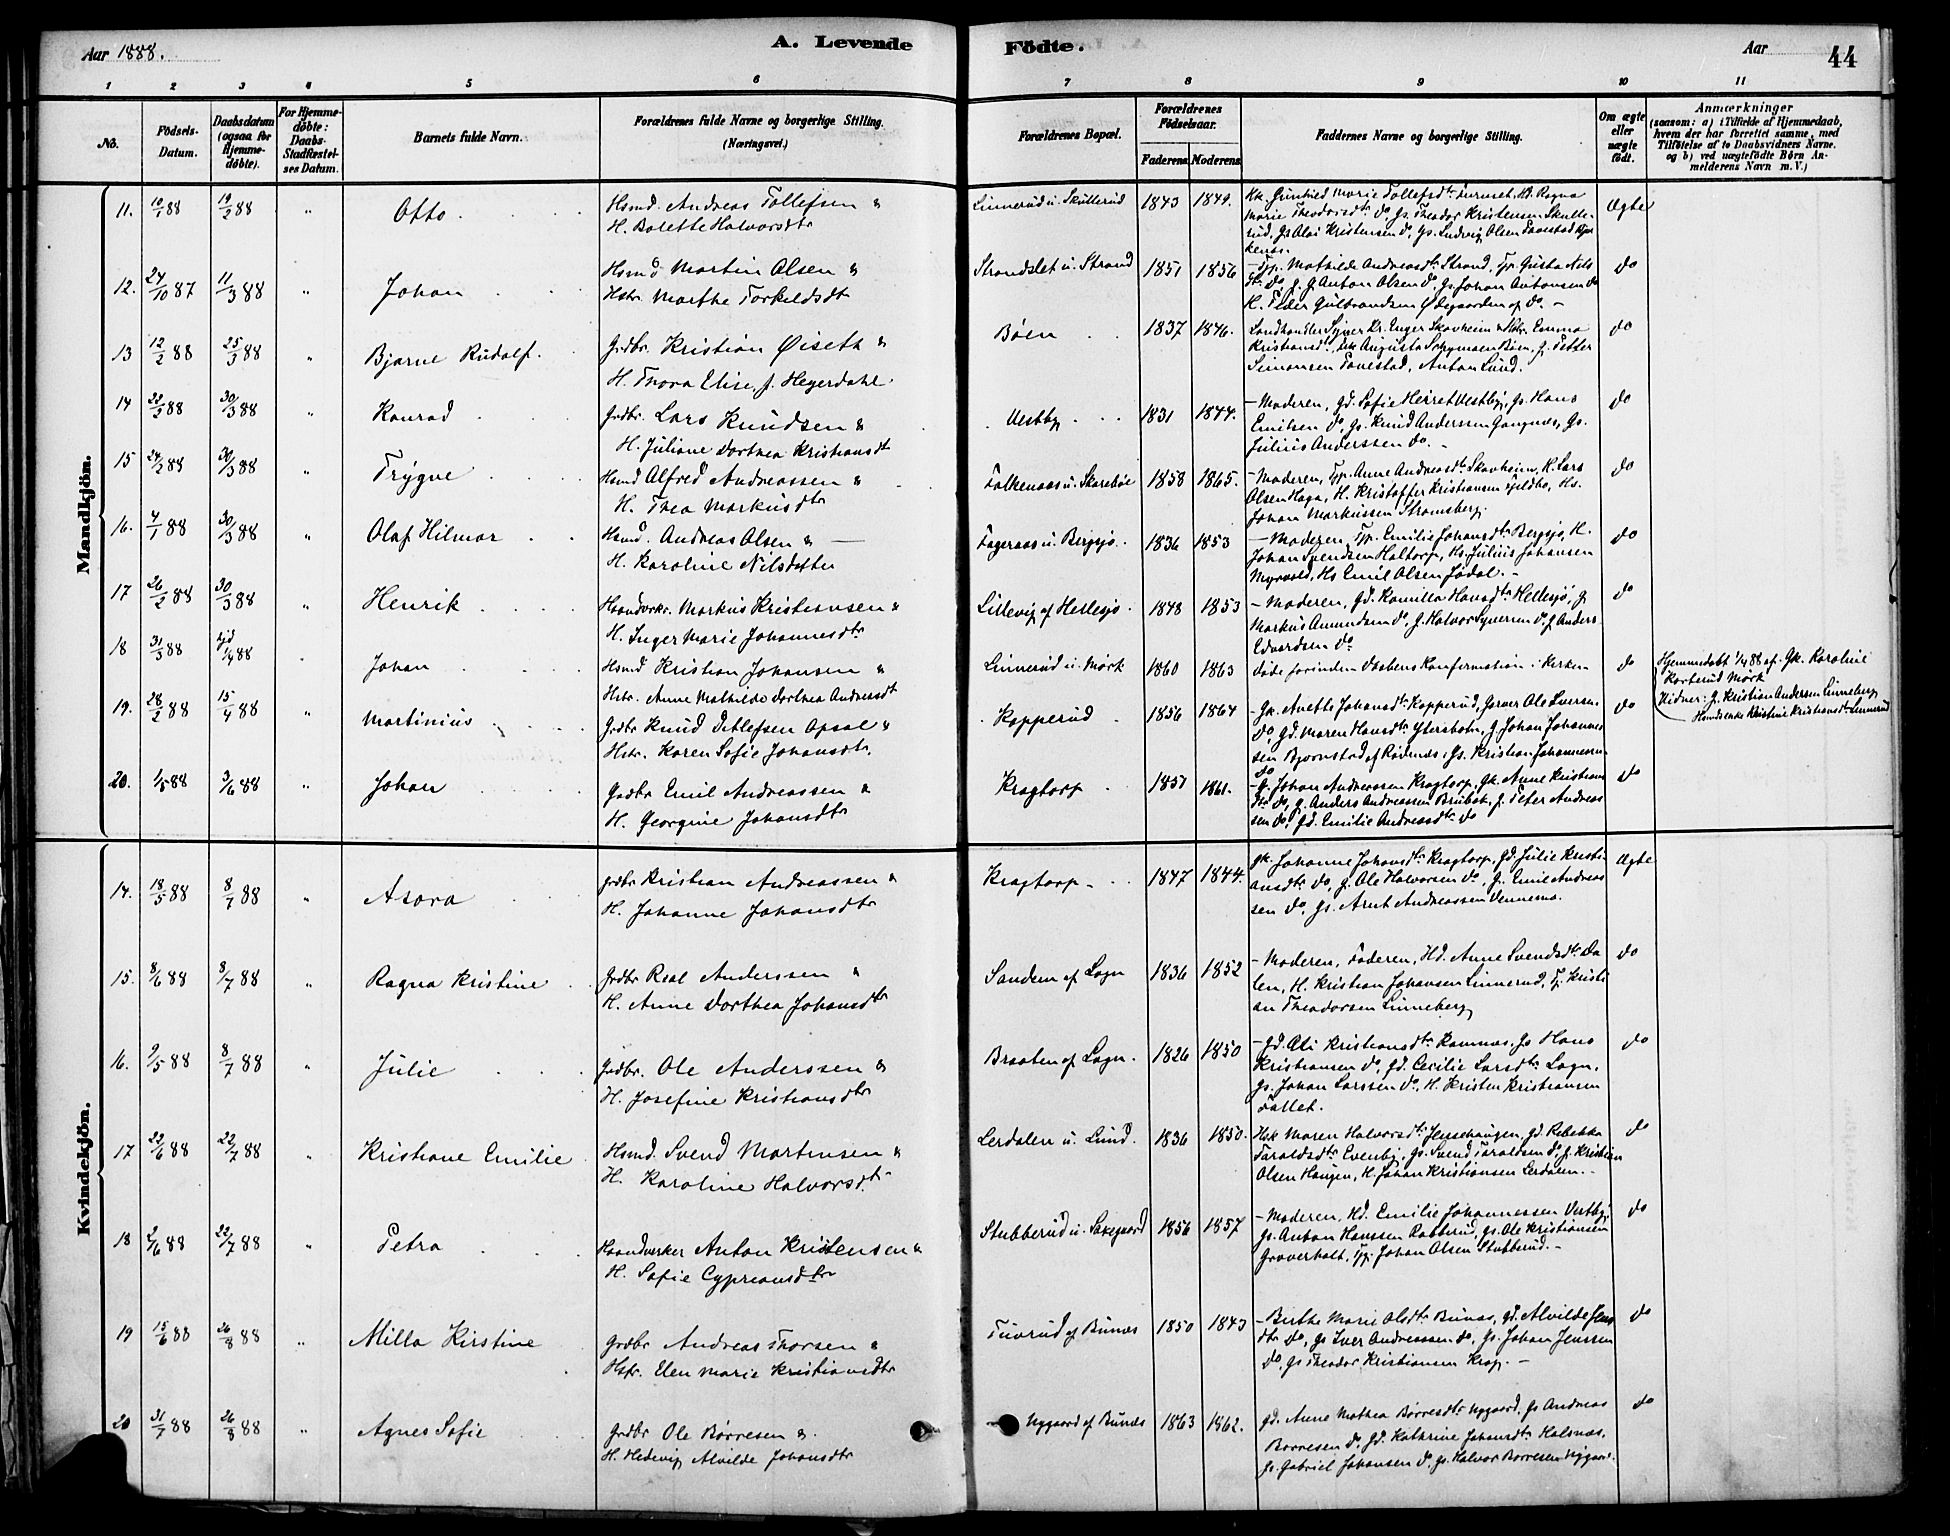 Aar 1888.
A. Levende
Födte.
Aar
44
1 2 3 4 5 6 7 8 9 10 11
No.
Födsels-Datum.
Daabsdatum (ogsaa for Hjemmedöbte).
For Hjemmedöbte: Daabs-Stadfæstelses Datum.
Barnets fulde Navn.
Forældrenes fulde Navne og borgerlige Stilling. (Næringsvei.)
Forældrenes Bopæl.
Forældrenes Födselsaar.
Faderens. Moderens.
Faddernes Navne og borgerlige Stilling.
Om ægte eller uægte födt.
Anmærkninger
(saasom: a) i Tilfælde af Hjemmedaab, hvem der har forrettet samme, med Tilföielse af to Daabsvidners Navne. og b) ved uægtefödte Börn Anmelderens Navn m.V.)
Mandkjön.
11. 10/1 88 19/2 88 " Otto
Hsmd. Andreas Tollefsen &
H. Bolette Halvorsdtr
Linnerud u. Skullerud 1843 1849.
Marie Theodorsdtr do, Gs. Theodor Kristensen Skulle-
rud, Gs Olai Kristensen do, Gs. Ludvig Olsen
Ægte
12. 24/10 87 11/3 88 " Johan
Hsmd Martin Olsen &
Hstr. Marthe Torkildsdt
Strandslet u. Strand 1851 1856
Mathilde Andreasdtr Strand, Gusta Nils
dtr do, g. Anton Olsen do, Gs Johan Antonsen do
H. Peder Gulbrandsen Ødegaarden af do. -
do
13 12/2 88 25/3 88 " Bjarne Rudolf.
Grdbr. Kristian Øiseth &
H. Thora Elise, f. Heyerdahl.
Böen 1837 1846.
Landhandler Syver Kr. Enger Skovheim & Hstr. Emma
Kristiansdtr, Augusta Böen, g. Petter
Simonsen Tovestad, Anton Lund.
do
14 22/2 88 30/3 88 " Konrad
Grdbr. Lars Knudsen &
H. Juliane Dorthea Kristiansdt
Vestby 1831 1844.
- Moderen, Gd. Sofie Vestby, Gs. Hans
Emilsen do, Gs. Knud Anderssen Gangnæs, Gs.
Julius Anderssen do.
do
15 24/2 88 30/3 88 " Trygve
Hsmd Alfred Andreassen &
H. Thea Markusdtr
Falkenaas u. Skarebøl 1858 1865.
- Moderen, Anne Andreasdtr Skovheim, Lars
Olsen Haga, H. Kristoffer Kristiansen Fjeldbo, Hs.
Johan Markussen Stromsberg.
do
16. 4/1 88 30/3 88 " Olaf Hilmar
Hsmd. Andreas Olsen &
H. Karoline Nilsdatter
Fageraas u. Bergsjø. 1836 1853
- Moderen, Tjp. Emilie Johansdtr Bergsjø, H.
Johan Svendsen Haltorp, Hs. Julius Johansen
Myrvold, Hs Emil Olsen Jødal. -
do
17 26/2 88 30/3 88 " Henrik
Haandvrkr. Markus Kristiansen &
H. Inger Marie Johannesdtr
Lillevig af Hellesjø. 1848 1853
- Moderen, Gd. Kamilla Hansdtr Hellesjø, g.
Markus Amundsen do, g. Halvor Syversen do g Anders
Edvardsen do
do
18 31/3 88 hjd 1/4 88 Johan
Hsmd Kristian Johansen &
Hstr. Anne Mathilde Dorthea Andreasdt
Linnerud u. Mørk 1860 1863
døde forinden Daabens Konfirmation i Kirken
do
Hjemmedøbt 1/4 88 af Gk. Karoline
Korterud Mørk
Vidner: g. Kristian Andersen Linneberg,
Kristine Kristiansdtr Linnerud
19. 28/2 88 15/4 88 " Martinius
Grdbr Knud Ditlefsen Opsal &
Hstr. Karen Sofie Johansdtr.
Kopperud 1856 1864
- Gk. Anette Johansdtr Kopperud, Ole Iversen
do, Gd. Maren Hansdtr Ytersbøl, G. Johan Johannes
sen Bjørnstad af Rødenes, Gs. Kristian Johannessen
do
do
20. 1/5 88 3/6 88 " Johan
Grdbr Emil Andreassen &
H. Georgine Johansdtr
Kragtorp 1857 1861.
- G. Johan Andreassen Kragtorp, Gk. Anne Kristians
dtr do, g. Anders Andreassen Brubak, g. Peter Andreas
sen do, Gd. Emilie Andreasdtr do
do
Kvindekjön.
14. 18/5 88 8/7 88 " Asora
Grdbr Kristian Andreassen &
H. Johanne Johansdtr
Kragtorp 1847 1844.
Gk. Johanne Johansdtr Kragtorp, Gd. Julie Kristi-
ansdtr do, g. Ole Halvorsen do, g. Emil Andreas
sen do, Gs. Arnt Andreassen Vennemo.
Ægte
15. 8/6 88 8/7 88 " Ragna Kristine
Grdbr Real Anderssen &
H. Anne Dorthea Johansdtr
Sandem af Logn 1836 1852
- Moderen, Faderen, Hd. Anne Svendsdtr Da
len, H. Kristian Johansen Linnerud, Tj. Kristi
an Theodorsen Linneberg
do
16. 9/5 88 8/7 88 " Julie
Grdbr. Ole Anderssen &
H. Josefine Kristiansdtr
Braaten af Logn. 1826 1850
- Gd. Oli Kristiansdtr Ramnæs, Gs Hans
Kristiansen do, Gd. Cecilie Larsdtr Logn,
Gs. Johan Larssen do, H. Kristen Kristiansen
Fallet.
do
17 22/6 88 22/7 88 " Kristiane Emilie
Hsmd. Svend Mortensen &
H. Karoline Halvorsdtr
Lerdalen u. Lund. 1836 1850.
Maren Halvorsdtr Jensehaugen, Gd. Rebekka
Taraldsdtr Evenby, Gs. Svend Taraldsen do, g. Kristian
Olsen Haugen, H. Johan Kristiansen Lerdalen. -
do
18 2/6 88 22/7 88 " Petra
Haandverker Anton Kristensen &
H. Sofie Cypriansdtr
Stubberud u. Saxegaard 1856 1857
- Moderen, Hd. Emilie Johannessen Vestby,
Gs. Anton Hanssen Rabberud, Gs. Ole Kristiansen
Graverholt, Tjp. Johan Olsen Stubberud. -
do
19 15/6 88 26/8 88 " Milla Kirstine
Grdbr Andreas Thorsen &
Hstr. Elen Marie Kristiansdtr
Tuvrud af Bunæs 1850 1843
- Birthe Marie Olsdtr Bunæs, Gd. Alvilde Jens
dtr do, Gs Iver Andreassen do, Gs. Johan Jenssen
do, Gs Theodor Kristiansen Krog. -
do
20 31/7 88 26/8 88 " Agnes Sofie
Grdbr Ole Børresen &
H. Hedevig Alvilde Johansdtr
Nygaard af Bunæs 1863 1862.
Gd. Anne Mathea Børresdtr Nygaard, Gs Andreas
Børresen do, Gd. Kathrine Johansdtr Kolsnæs,
Gs. Gabriel Johansen do, Gs. Halvor Børresen Nygaard.
do